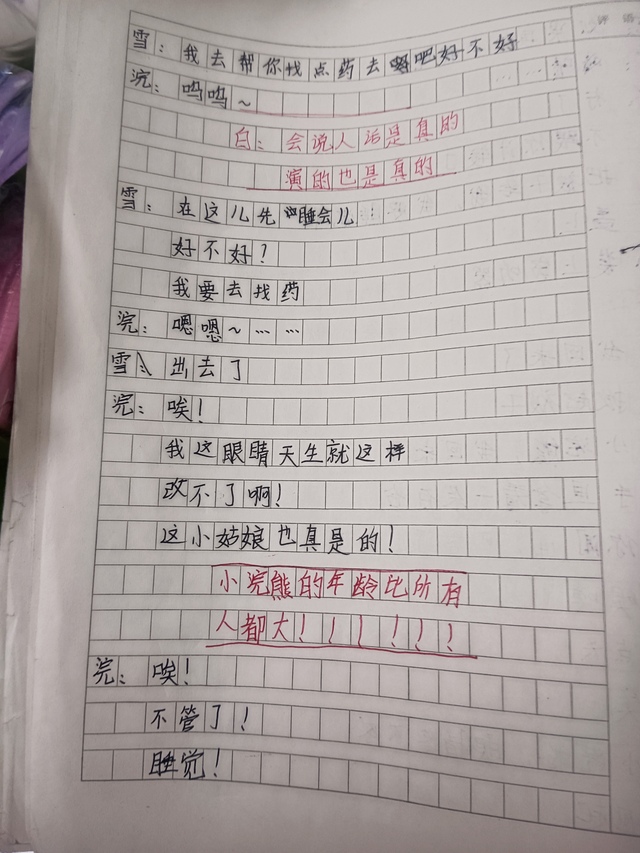 雪：我去帮你找点药去吧好不好
浣：呜呜~
白：会说人话是真的
演的也是真的
雪：在这儿先睡会儿
好不好？
我要去找药
浣：嗯嗯~……
雪：出去了
浣：唉！
我这眼睛天生就这样
改不了啊！
这小姑娘也真是的！
小浣熊的年龄比所有
人都大！！！！！！
浣：唉！
不管了！
睡觉！